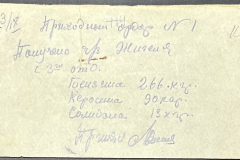 Приходный ордер N 1
Получено
с 3го отд.
Бензина 266 кгр.
Керосина 90 кгр.
Солидола 13 кгр.
Принял